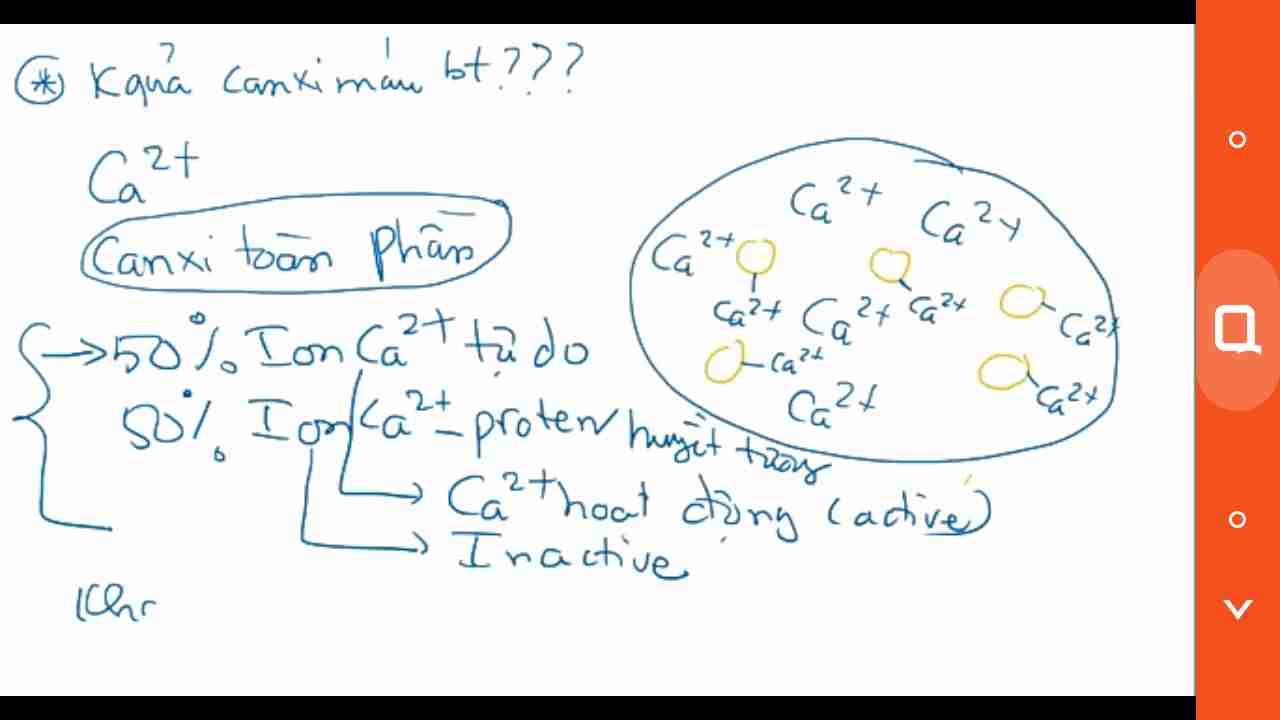 * Kquả canxi máu bt???
Ca2+
Canxi toàn phần
→50% Ion Ca2+ tự do
50% Ion Ca2+ - proten huyết tương
Ca2+ hoạt động (active)
Inactive
Khr
Ca2+
Ca2+
Ca2+
Ca2+
Ca2+
Ca2+
Ca2+
Ca2+
Ca2+
Ca2+